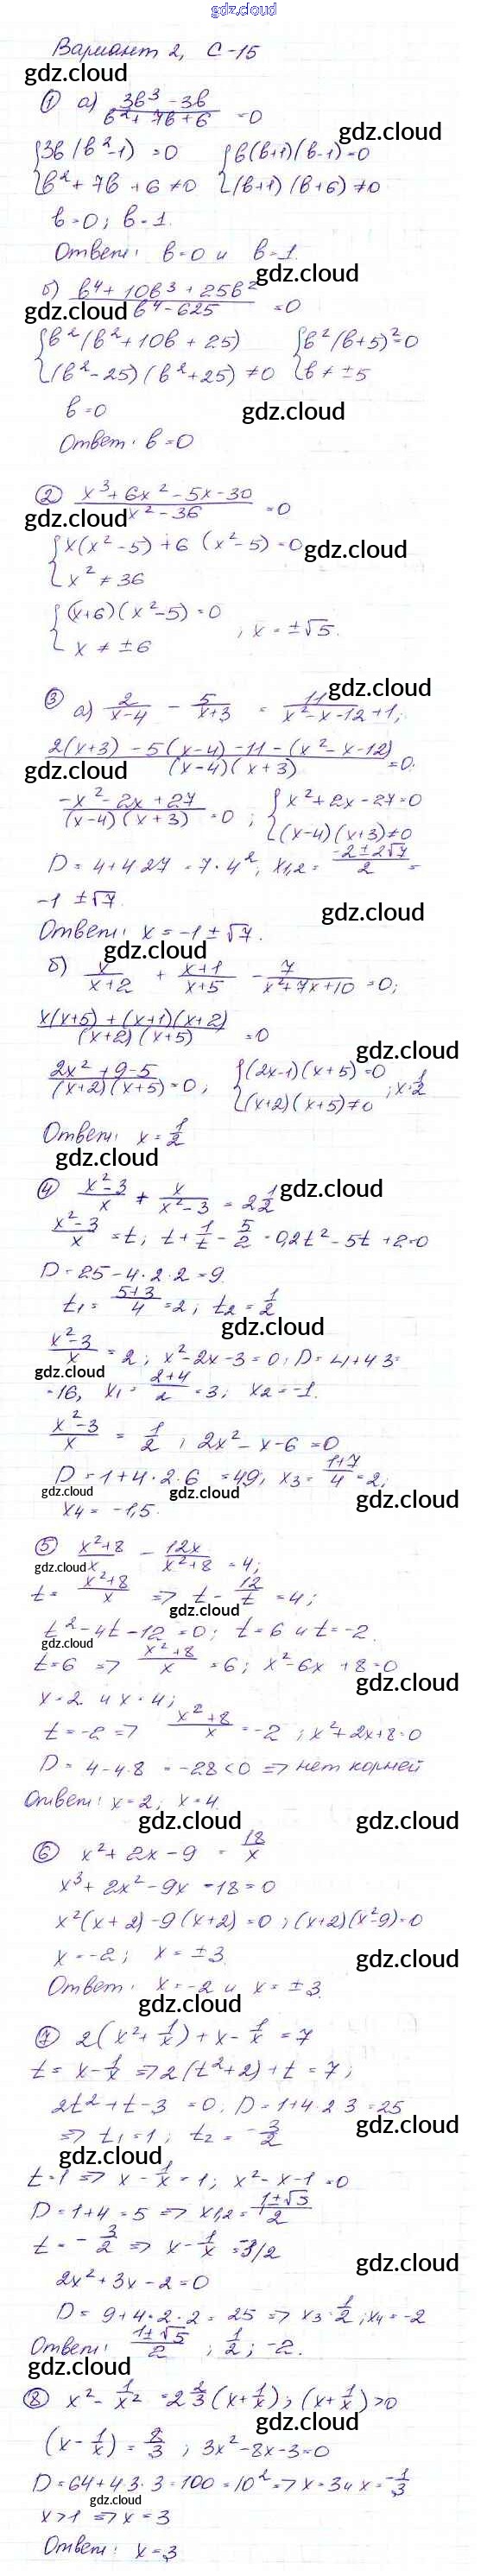 gdz.cloud
Вариант 2, С-15
gdz.cloud
① а) (3b³ - 3b)/(b² + 7b + 6) = 0
gdz.cloud
{3b(b²-1) = 0 {b(b+1)(b-1) = 0
{b² + 7b + 6 ≠ 0 {(b+1)(b+6) ≠ 0
b = 0; b = 1.
Ответ: b = 0 и b = 1.
gdz.cloud
б) (b⁴ + 10b³ + 25b²)/(b⁴ - 625) = 0
gdz.cloud
{b²(b² + 10b + 25) {b²(b+5)² = 0
{(b² - 25)(b² + 25) ≠ 0 {b ≠ ±5
b = 0
gdz.cloud
Ответ: b = 0
② (x³ + 6x² - 5x - 30)/(x² - 36) = 0
gdz.cloud
{x(x² - 5) + 6(x² - 5) = 0
gdz.cloud
{x² ≠ 36
{(x+6)(x² - 5) = 0
{x ≠ ±6 ; x = ±√5.
gdz.cloud
③ а) 2/(x-4) - 5/(x+3) = 11/(x² - x - 12) + 1;
(2(x+3) - 5(x-4) - 11 - (x² - x - 12))/((x-4)(x+3)) = 0.
gdz.cloud
(-x² - 2x + 27)/((x-4)(x+3)) = 0 ; {x² + 2x - 27 = 0
{(x-4)(x+3) ≠ 0
D = 4 + 4·27 = 7·4²; x₁,₂ = (-2 ± 2√7)/2 =
-1 ± √7.
gdz.cloud
Ответ: x = -1 ± √7.
gdz.cloud
б) x/(x+2) + (x+1)/(x+5) - 7/(x² + 7x + 10) = 0;
(x(x+5) + (x+1)(x+2))/((x+2)(x+5)) = 0
gdz.cloud
(2x² + 9 - 5)/((x+2)(x+5)) = 0; {(2x-1)(x+5) = 0
{(x+2)(x+5) ≠ 0 ; x = 1/2
Ответ: x = 1/2
gdz.cloud
④ (x² - 3)/x + x/(x² - 3) = 2 1/2
gdz.cloud
(x² - 3)/x = t; t + 1/t - 5/2 = 0, 2t² - 5t + 2 = 0
D = 25 - 4·2·2 = 9.
t₁ = (5+3)/4 = 2; t₂ = 1/2
gdz.cloud
(x² - 3)/x = 2; x² - 2x - 3 = 0; D = 4 + 4·3 =
gdz.cloud
= 16, x₁ = (2+4)/2 = 3; x₂ = -1.
(x² - 3)/x = 1/2 ; 2x² - x - 6 = 0
D = 1 + 4·2·6 = 49; x₃ = (1+7)/4 = 2;
gdz.cloud gdz.cloud gdz.cloud
x₄ = -1,5.
⑤ (x² + 8)/x - 12x/(x² + 8) = 4;
gdz.cloud
t = (x² + 8)/x => t - 12/t = 4;
gdz.cloud
t² - 4t - 12 = 0; t = 6 и t = -2.
gdz.cloud
t = 6 => (x² + 8)/x = 6; x² - 6x + 8 = 0
gdz.cloud
x = 2 и x = 4;
t = -2 => (x² + 8)/x = -2 ; x² + 2x + 8 = 0
D = 4 - 4·8 = -28 < 0 => нет корней
Ответ: x = 2; x = 4.
gdz.cloud gdz.cloud
⑥ x² + 2x - 9 = 18/x
x³ + 2x² - 9x - 18 = 0
x²(x+2) - 9(x+2) = 0; (x+2)(x² - 9) = 0
x = -2; x = ±3.
gdz.cloud
Ответ: x = -2 и x = ±3.
gdz.cloud
⑦ 2(x² + 1/x) + x - 1/x = 7
t = x - 1/x => 2(t² + 2) + t = 7;
2t² + t - 3 = 0. D = 1 + 4·2·3 = 25
gdz.cloud
=> t₁ = 1; t₂ = -3/2
gdz.cloud
t = 1 => x - 1/x = 1; x² - x - 1 = 0
D = 1 + 4 = 5 => x₁,₂ = (1 ± √5)/2
t = -3/2 => x - 1/x = -3/2
gdz.cloud
2x² + 3x - 2 = 0
D = 9 + 4·2·2 = 25 => x₃ = 1/2; x₄ = -2
Ответ: (1 ± √5)/2 ; 1/2; -2.
gdz.cloud
⑧ x² - 1/x² = 2 2/3 (x + 1/x); (x + 1/x) > 0
gdz.cloud
(x - 1/x) = 8/3 ; 3x² - 8x - 3 = 0
D = 64 + 4·3·3 = 100 = 10² => x = 3 и x = -1/3
gdz.cloud
x > 1 => x = 3
Ответ: x = 3